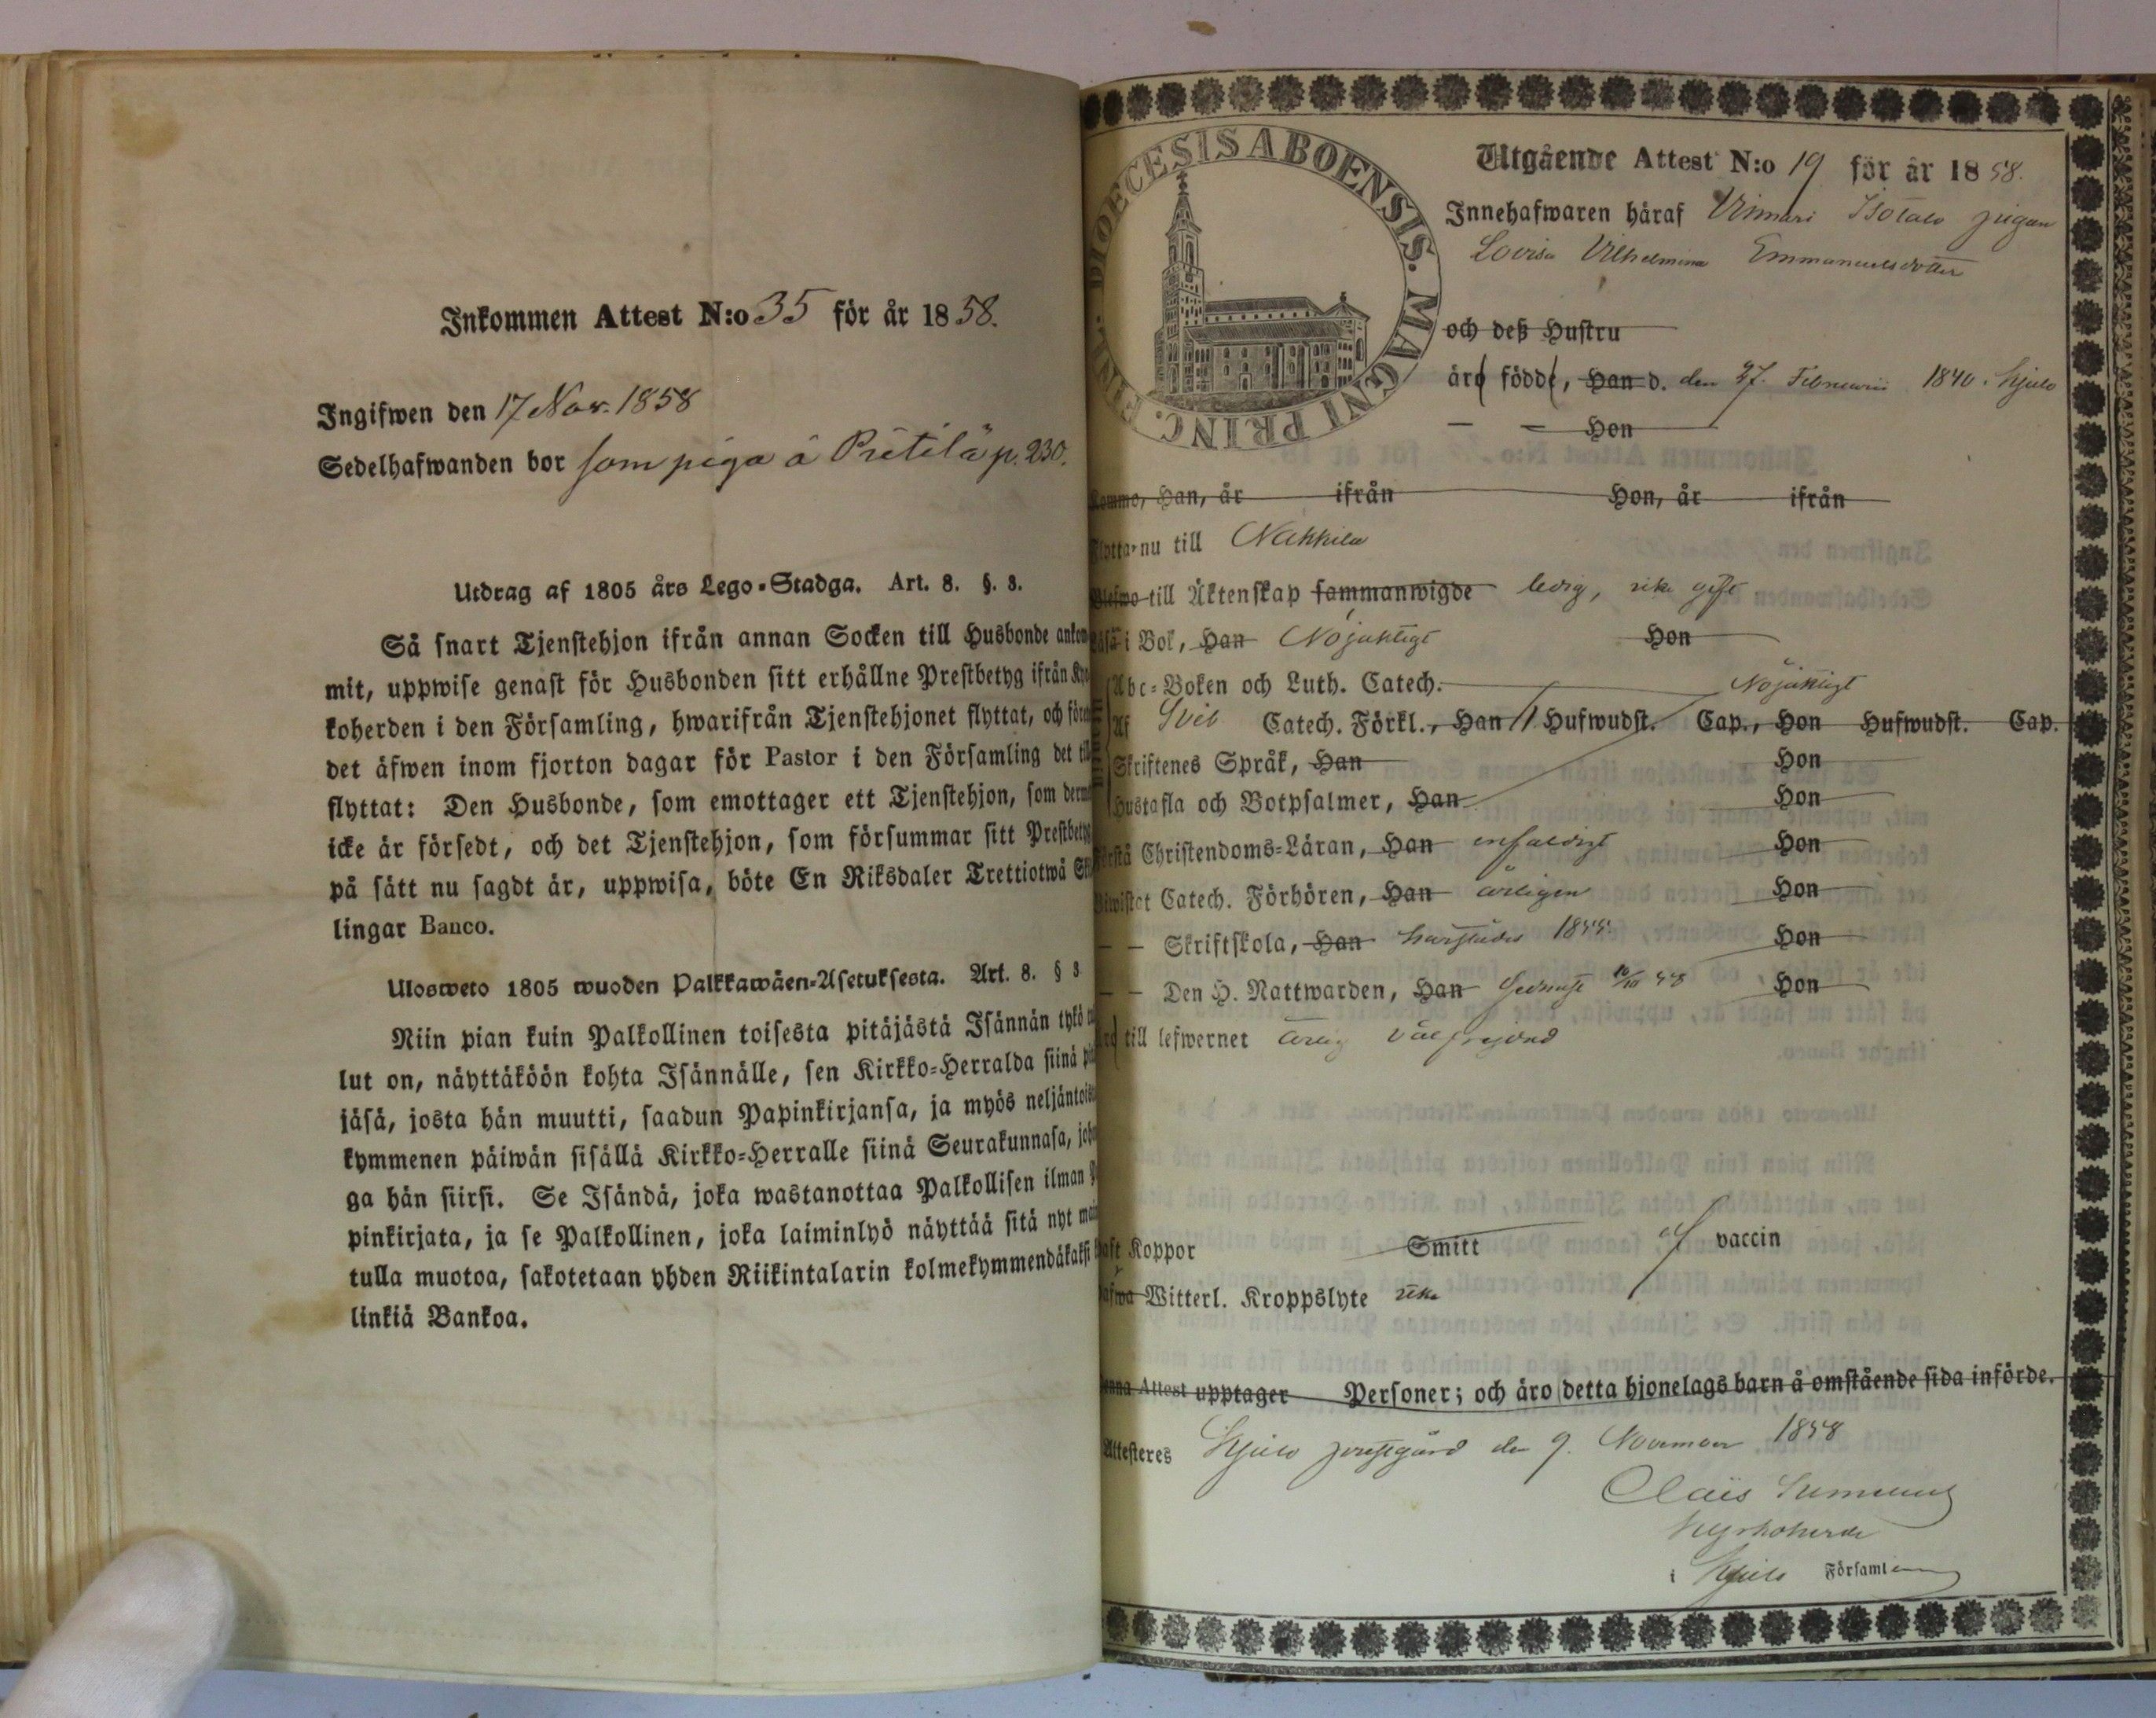 Inkommen Attest N:o 35 för år 1858.
Ingifwen den 17 Nov. 1858
Sedelhafwanden bor som piga å Pritilä p. 230.
Utdrag af 1805 års Lego-Stadga. Art. 8. §. 3.
Så snart Tjenstehjon ifrån annan Socken till Husbonde
mit, uppwise genast för Husbonden sitt erhållne Prestbetyg ifrån
koherden i den Församling, hwarifrån Tjenstehjonet flyttat, och
det äfwen inom fjorton dagar för Pastor i den Församling det
flyttat: Den Husbonde, som emottager ett Tjenstehjon, som
icke är försedt, och det Tjenstehjon, som försummar sitt Prestbetyg
på sätt nu sagdt är, uppwisa, böte En Riksdaler Trettiotwå
lingar Banco.
Ulosweto 1805 wuoden Palkkawäen-Asetuksesta. Art. 8. § 3
Niin pian kuin Palkollinen toisesta pitäjästä Isännän tykö
lut on, näyttäköön kohta Isännälle, sen Kirkko-Herralda siinä
jäsä, josta hän muutti, saadun Papinkirjansa, ja myös
kymmenen päiwän sisällä Kirkko-Herralle siinä Seurakunnasa,
ga hän siirsi. Se Isändä, joka wastanottaa Palkollisen ilman
pinkirjata, ja se Palkollinen, joka laiminlyö näyttää sitä nyt
tulla muotoa, sakotetaan yhden Riikintalarin kolmekymmendäkaksi
linkiä Bankoa.
DIOECESIS ABOENSIS. MAGNI PRINC.
Utgående Attest N:o 19 för år 1858.
Innehafwaren häraf Vinnari Isotalo pigan
Lovisa Vilhelmina Emmanuelsdotter
och deß Hustru
äro födde, Han d. den 27. Februarii 1840. Kjulo
— — Hon
Kommo, Han, år ifrån Hon, år ifrån
nu till Nakkila
till Äktenskap sammanwigde ledig, icke gift
i Bok, Han Nöjaktigt Hon
Abc-Boken och Luth. Catech. Nöjaktigt
Af Sveb Catech. Förkl., Han Hufwudst. Cap., Hon Hufwudst. Cap.
Skriftenes Språk, Han Hon
Hustafla och Botpsalmer, Han Hon
Christendoms-Läran, Han enfaldigt Hon
Catech. Förhören, Han årligen Hon
— — Skriftskola, Han 1855 Hon
— — Den H. Nattwarden, Han Hon
till lefwernet ärlig välfrejdad
Koppor Smitt af vaccin
Witterl. Kroppslyte icke
Attest upptager Personer; och äro detta hjonelags barn å omstående sida införde.
Attesteres Kjulo prestgård den 9. November 1858
Claës
Kyrkoherde
i Kjulo Församl